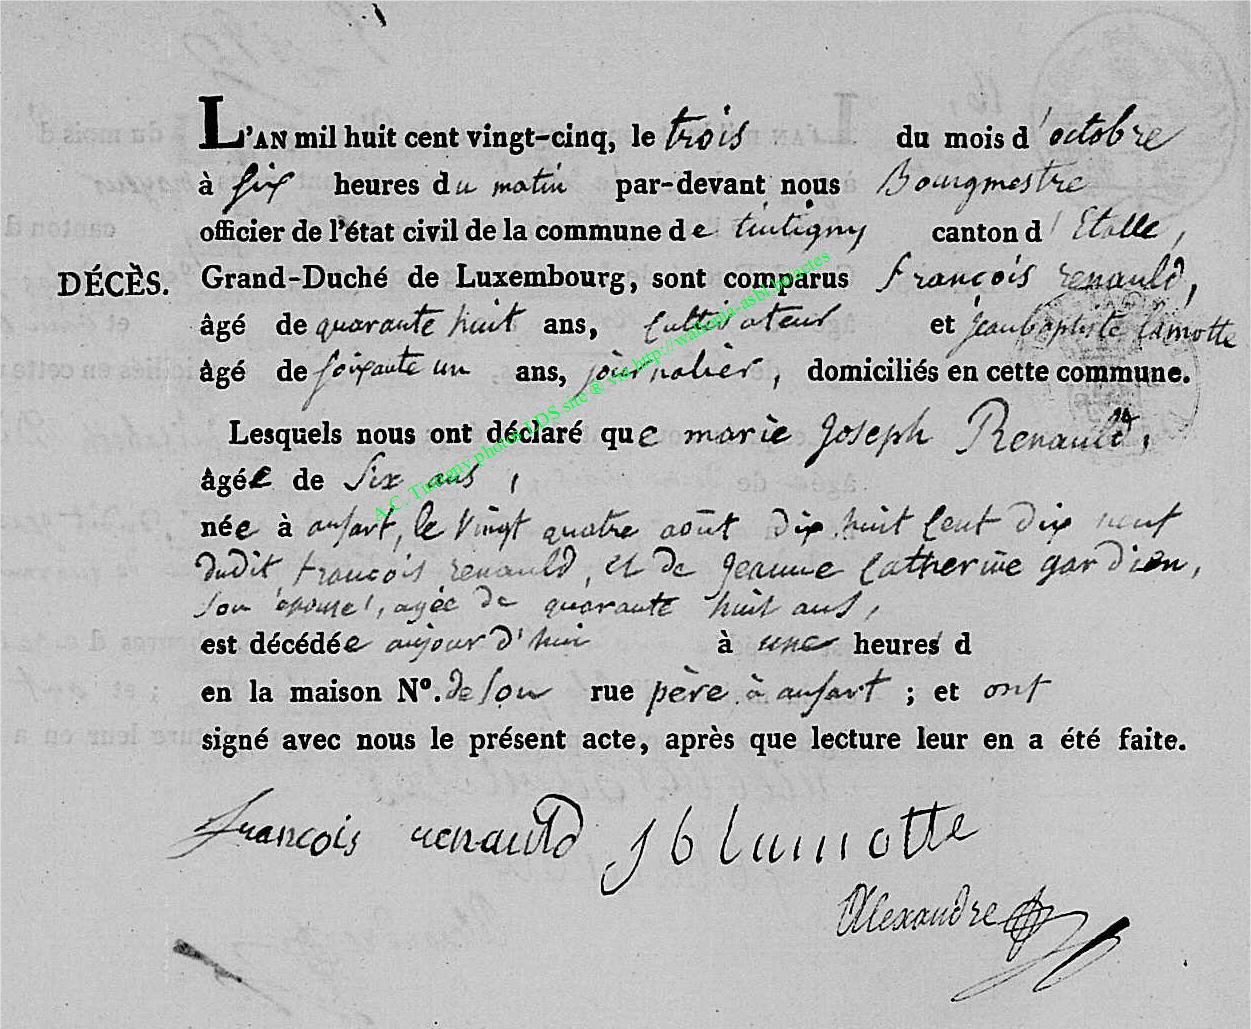 L'AN mil huit cent vingt-cinq, le trois du mois d'octobre
à six heures du matin par-devant nous Bourgmestre
officier de l'état civil de la commune de tintigny canton d'Etalle,
DÉCÈS. Grand-Duché de Luxembourg, sont comparus François renauld,
âgé de quarante huit ans, Cultivateur et jean baptiste lamotte
âgé de soixante un ans, journalier, domiciliés en cette commune.
Lesquels nous ont déclaré que marie Joseph Renauld,
âgée de Six ans,
née à ansart, le Vingt quatre août dix huit Cent dix neuf
dudit françois renauld, et de jeanne Catherine gardien,
son épouse, agée de quarante huit ans,
est décédée aujourd'hui à une heures d
en la maison Nº. de son rue père à ansart ; et ont
signé avec nous le présent acte, après que lecture leur en a été faite.
françois renauld J b lamotte
Alexandre
A.C. Tintigny photos LDS site ® via http://wallonia-asbl.be/actes